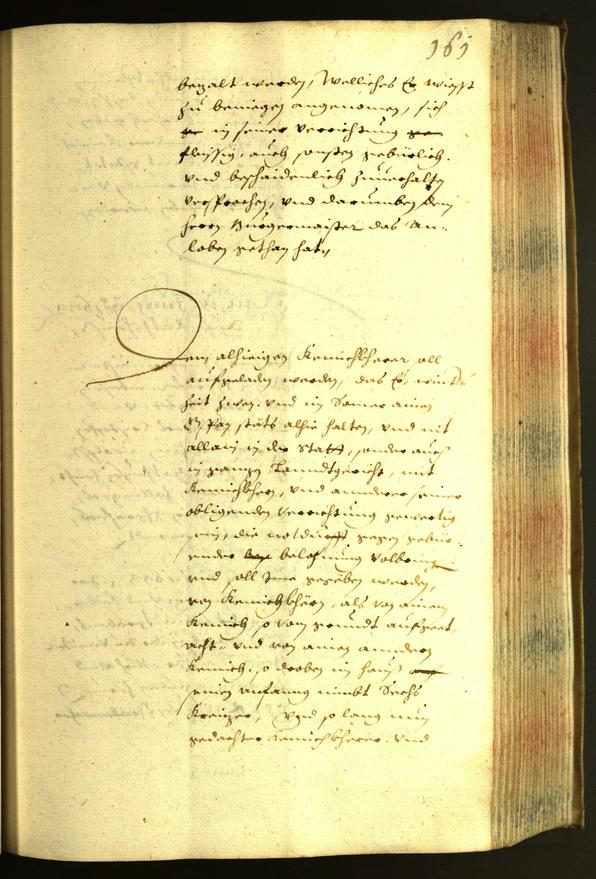 161
bezalt werden, Welliches Er, Wirft
zu beniegen angenomen, sich
in seiner verrichtung
fleissig, auch sonsten gebürlich.
vnd beschaidenlich zuuerhalten
versprochen, vnd darumben dem
herrn Burgermaister das an-
loben gethan hat,
Dem alhieigen Kemichkherer soll
aufgeladen werden, das Er, winters
zeit zwen. vnd im Somer ainen
stäts alhie halten, vnd nit
allain in der Statt, sonder auch
in ganzen Lanndtgericht, mit
Kemichkhern, vnd annderer seiner
obligenden verrichtung gewertig
sein, die notdurfft gegen gebür-
ender belohnung volbringen
vnd soll Ime gegeben werden,
von Kemichkhern, als von ainem
Kemich, so vom grundt aufgeet,
acht. vnd von ainem anndern
Kemich, so droben im hauß
seinen anfanng nimbt Sechs
Kreuzer, Vnd so lang nun
gedachter Kemichkherer. vnd